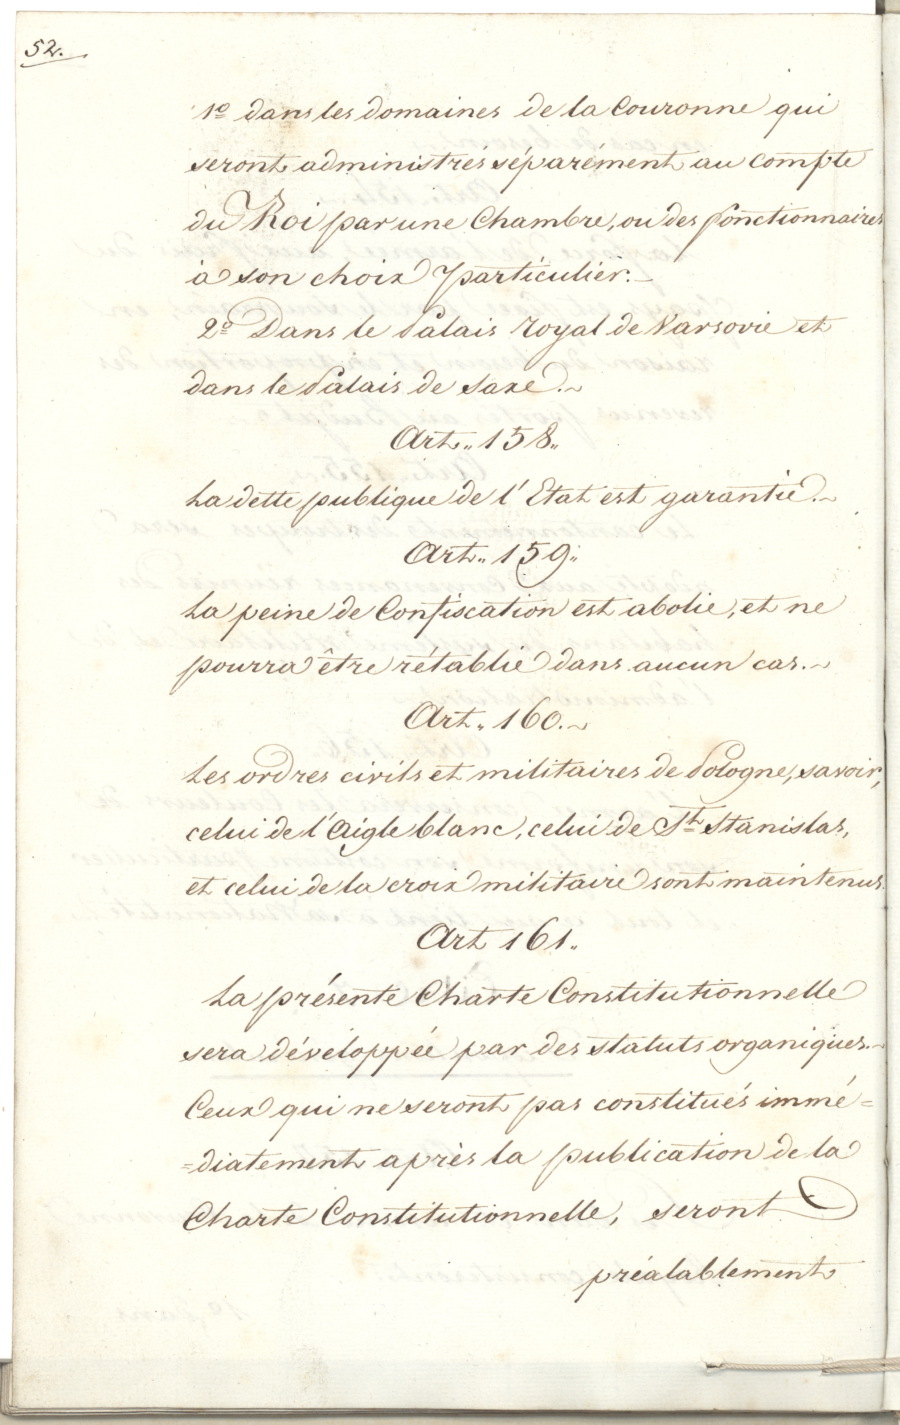 52.
1º dans les domaines de la Couronne qui
seront administrés séparément au compte
du Roi par une Chambre, ou des fonctionnaires
à son choix particulier.
2º Dans le Palais royal de Varsovie et
dans le Palais de Saxe.
Art. 158.
La dette publique de l'Etat est garantie.
Art. 159.
La peine de Confiscation est abolie, et ne
pourra être rétablie dans aucun cas.
Art. 160.
Les ordres civils et militaires de Pologne, savoir,
celui de l'Aigle blanc, celui de St. Stanislas,
et celui de la croix militaire sont maintenus.
Art 161.
La présente Charte Constitutionnelle
sera développée par des statuts organiques.
Ceux qui ne seront pas constitués immé=
=diatement après la publication de la
Charte Constitutionnelle, seront
préalablement